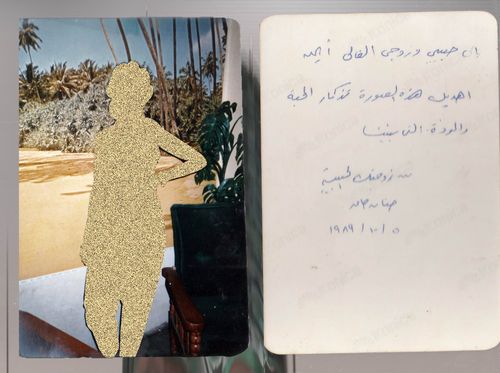 إلى حبيبي وزوجي الغالي أيمن
اهديك هذه الصورة تذكار المحبة
والمودة التي بيننا
من زوجتك الحبيبة
حنان
١٩٨٩/١٠/٥